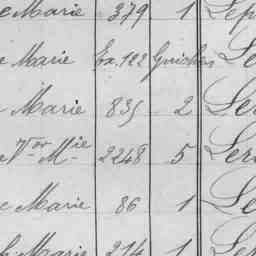 Marie 379 1 Lep
Marie Ex.122 Guichen Le
Marie 835 2 Ler
Vor Mie 2248 5 Ler
Marie 86 1 Le
Marie 214 1 Lep